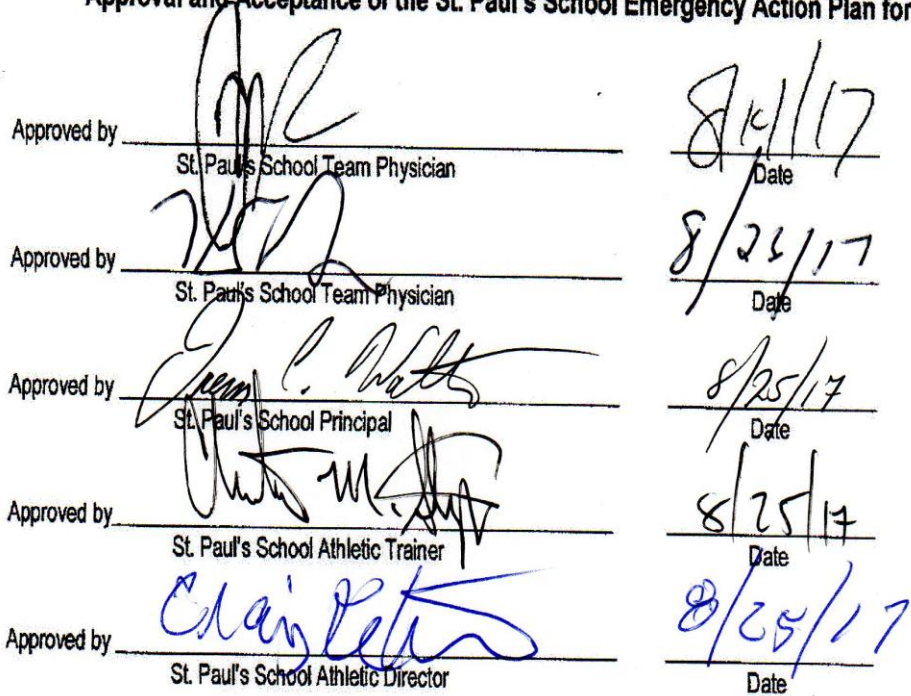 Approval and Acceptance of the St. Paul's School Emergency Action Plan for
Approved by
St. Paul's School Team Physician
Date
Approved by 8/23/17
St. Paul's School Team Physician
Date
Approved by 8/25/17
St. Paul's School Principal
Date
Approved by 8/25/17
St. Paul's School Athletic Trainer
Date
Approved by Craig 8/25/17
St. Paul's School Athletic Director
Date